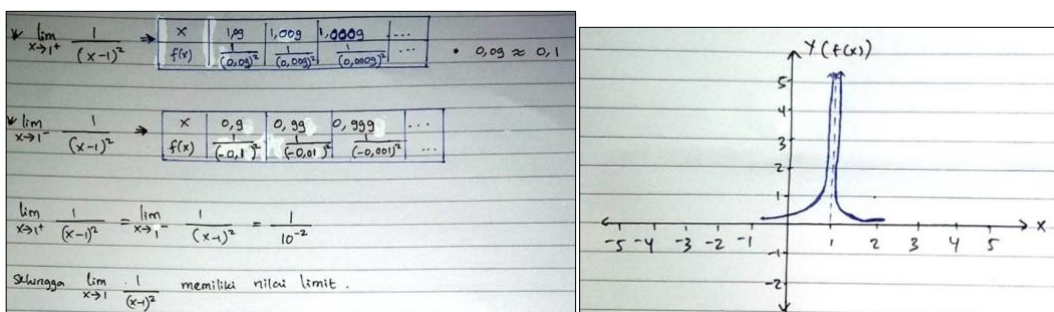 lim x→1⁺ 1/(x-1)² ⇒ x | 1,09 | 1,009 | 1,0009 | ...
f(x) | 1/(0,09)² | 1/(0,009)² | 1/(0,0009)² | ...
• 0,09 ≈ 0,1
lim x→1⁻ 1/(x-1)² ⇒ x | 0,9 | 0,99 | 0,999 | ...
f(x) | 1/(-0,1)² | 1/(-0,01)² | 1/(-0,001)² | ...
lim x→1⁺ 1/(x-1)² = lim x→1⁻ 1/(x-1)² = 1/10⁻²
Sehingga lim x→1 1/(x-1)² memiliki nilai limit.
Y (f(x))
5
4
3
2
1
-5 -4 -3 -2 -1 1 2 3 4 5 X
-1
-2